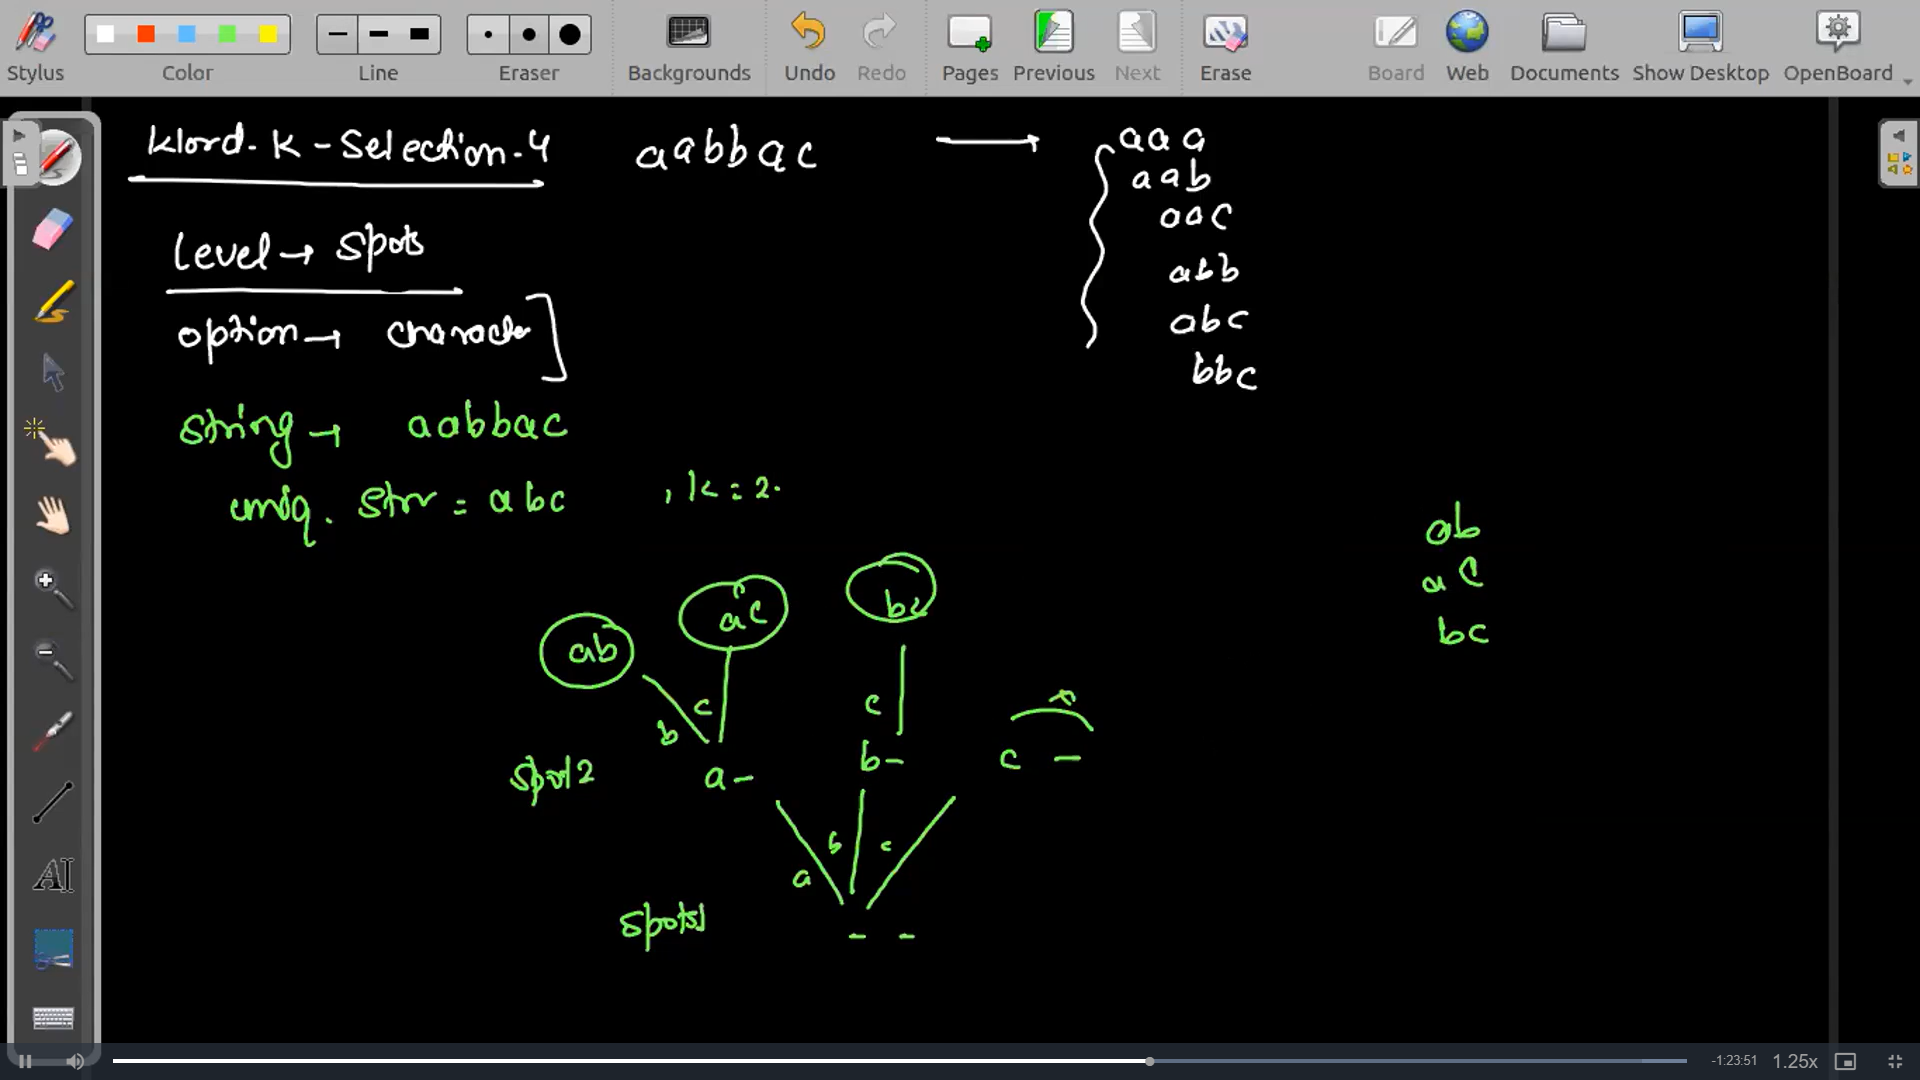 Stylus Color Line Eraser Backgrounds Undo Redo Pages Previous Next Erase Board Web Documents Show Desktop OpenBoard
klord-K-Selection-4 aabbac → aaa
aab
aac
abb
abc
bbc
level → spots
option → character
string → aabbac
uniq. str = abc , k = 2.
ab
ac
bc
ab ac bc
b c c x
spot2 a - b - c -
a b c
spots1 - -
AI
-1:23:51 1.25x